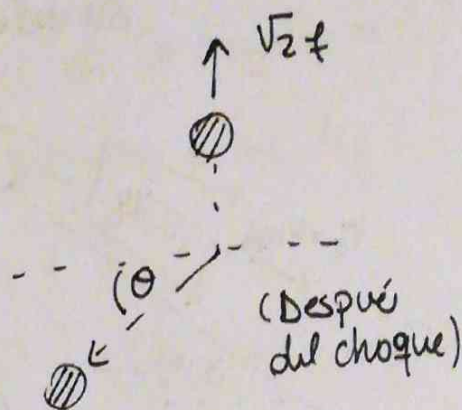 √2 f
θ
(Despué
del choque)